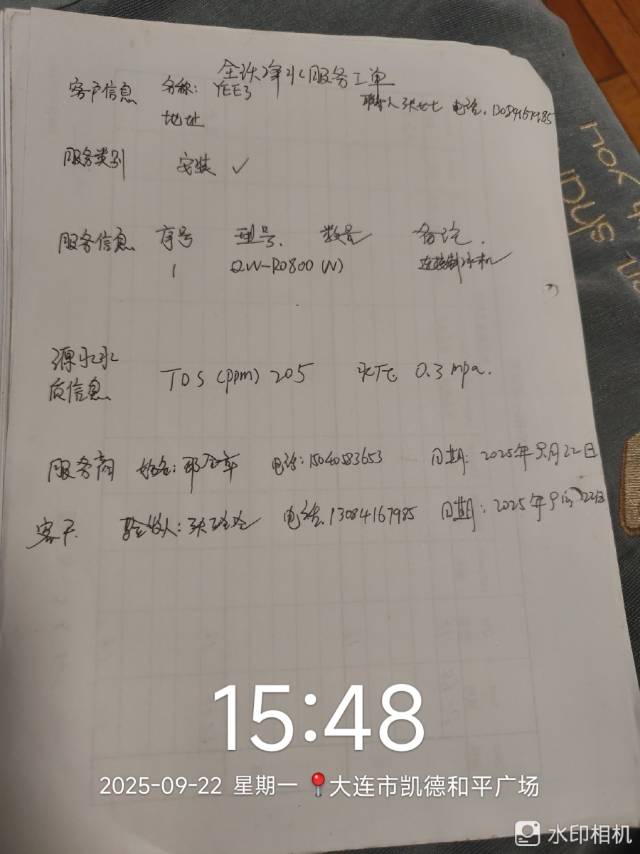 净水服务工单
客户信息 名称: YEE3 联系人 张 电话. 13084167985
地址
服务类别 安装 ✓
服务信息 序号 型号. 数量 备注.
1 QW-R0800 (W) 连接制冰机
源水水 TDS (ppm) 205 水压 0.3 mpa.
质信息
服务商 姓名: 电话: 15040583653 日期: 2025年9月22日
客户 验收人: 张 电话. 13084167985 日期: 2025年9月22日
15:48
2025-09-22 星期一 大连市凯德和平广场
水印相机
you
shin